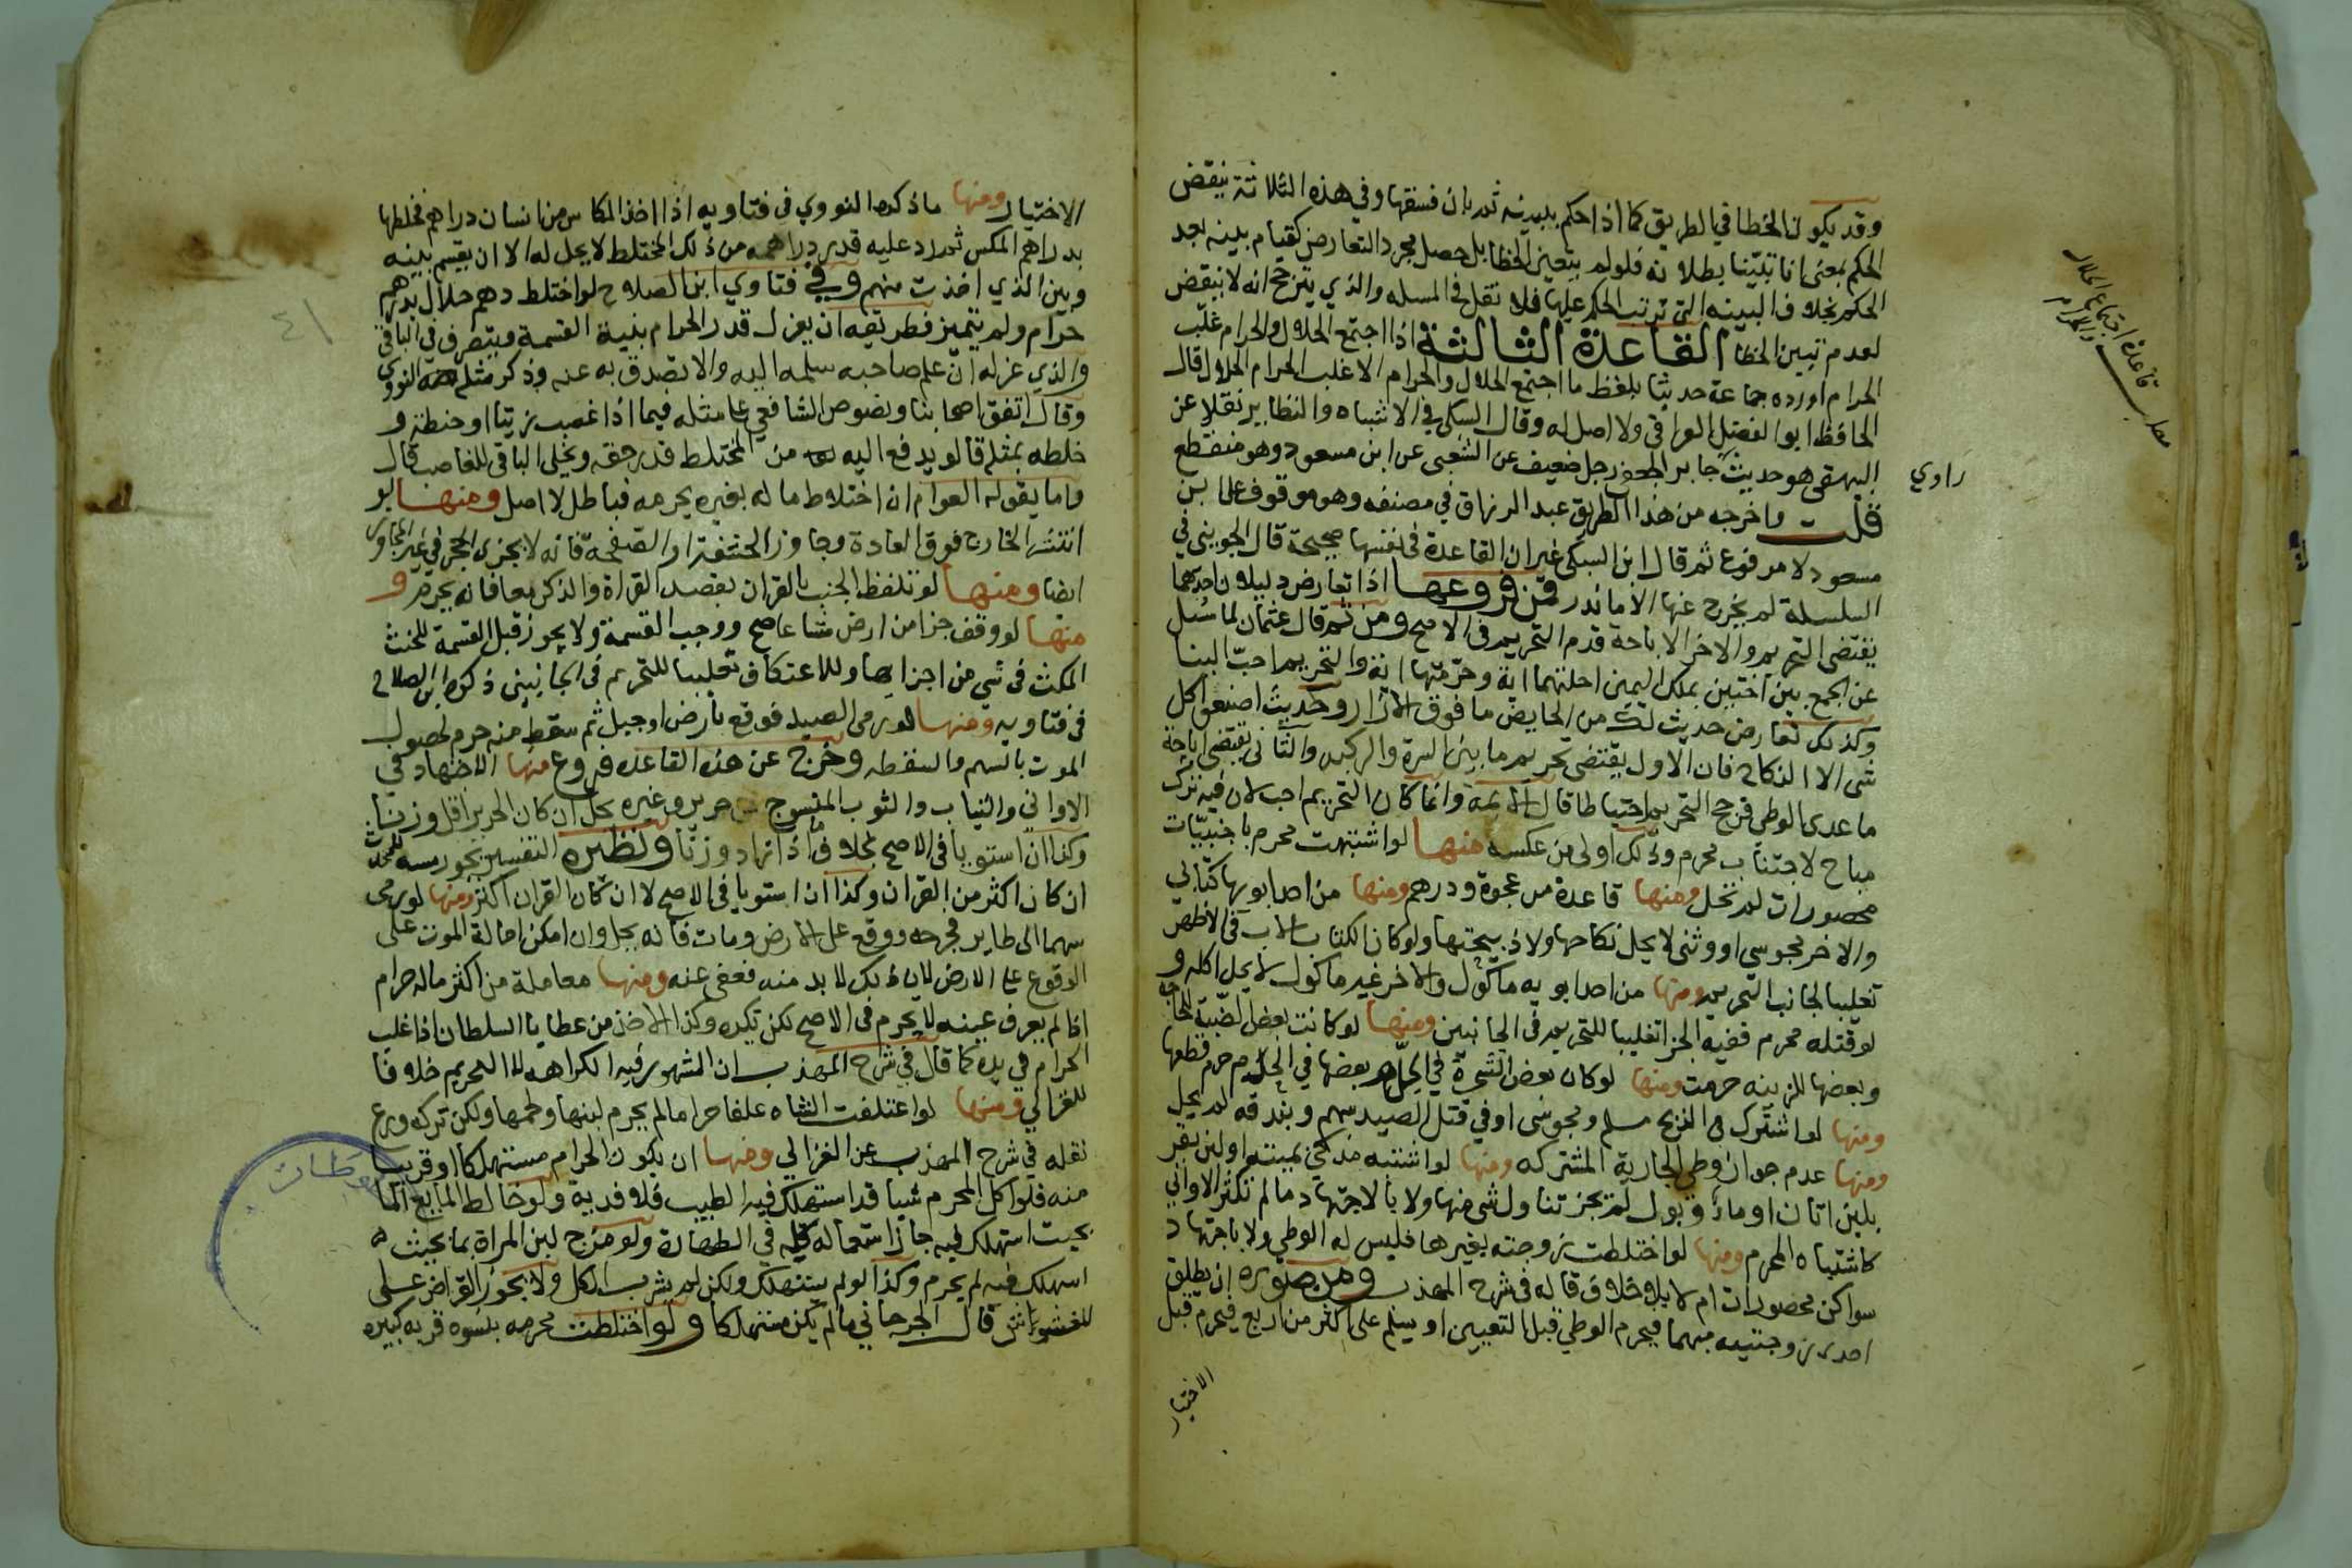 وقد يكون الخطا في الطريق كما اذا حكم ببينة ثم بان فسقها وفي هذه الثلاثة ينقض
الحكم بمعنى انا تبيّنا بطلانه فلو لم يتعين الخطا بل حصل مجرد التعارض كقيام بينه بعد
الحكم بخلاف البينه التي ترتب الحكم عليها فلا نقل في المسله والذي يترجح انه لا ينقض
لعدم تبين الخطا القاعدة الثالثة اذا اجتمع الحلال والحرام غلّب
الحرام اورده جماعة حديثا بلفظ ما اجتمع الحلال والحرام الا غلب الحرام الحلال قال
الحافظ ابو الفضل العراقي ولا اصل له وقال السبكي في الاشباه والنظاير نقلا عن
البيهقي هو حديث جابر الجعفي رجل ضعيف عن الشعبي عن ابن مسعود وهو منقطع
راوي
قلت واخرجه من هذا الطريق عبد الرزاق في مصنفه وهو موقوف على ابن
مسعود لا مرفوع ثم قال ابن السبكي غير ان القاعدة في نفسها صحيحة قال الجويني في
السلسلة لم يخرج عنها الا ما ندر فمن فروعها اذا تعارض دليلان احدهما
يقتضي التحريم والاخر الاباحة قدم التحريم في الاصح ومن ثم قال عثمان لما سُئل
عن الجمع بين اختين بملك اليمين احلتهما اية وحرّمتهما اية والتحريم احبّ الينا
وكذلك تعارض حديث لك من الحايض ما فوق الازار وحديث اصنعوا كل
شي الا النكاح فان الاول يقتضي تحريم ما بين السرة والركبه والثاني يقتضي اباحة
ما عدى الوطي فرجح التحريم احتياطا قال الايمه وانما كان التحريم احب لان فيه ترك
مباح لاجتناب محرم وذلك اولى من عكسه منها لو اشتبهت محرم باجنبيّات
محصورات لم تحل ومنها قاعدة مد عجوة ودرهم ومنها من احد ابويها كتابي
والاخر مجوسي او وثني لا يحل نكاحها ولا ذبيحتها ولو كان الكتابي الاب في الاظهر
تغليبا لجانب التحريم ومنها من احد ابويه ماكول والاخر غير ماكول لا يحل اكله و
لو قتله محرم ففيه الجزا تغليبا للتحريم في الجانبين ومنها لو كانت بعض الضبّة للحاجه
وبعضها للزينه حرمت ومنها لو كان بعض الشجرة في الحل وبعضها في الحرم حرم قطعها
ومنها لو اشترك في الذبح مسلم ومجوسى او في قتل الصيد سهم وبندقه لم يحل
ومنها عدم جواز وطي الجارية المشتركه ومنها لو اشتبه مذكي بميتة او لبن بقر
بلبن اتان او ماء وبول لم يجز تناول شي منها ولا بالاجتهاد ما لم تكثر الاواني
كاشتباه المحرم ومنها لو اختلطت زوجته بغيرها فليس له الوطي ولا باجتهاد
سواكن محصورات ام لا بلا خلاف قاله في شرح المهذب ومن صوره ان يطلق
احدى زوجتيه مبهما فيحرم الوطي قبل التعيين او يسلم على اكثر من اربع فيحرم قبل
الاختيار
مطلب قاعدة اجتماع الحلال
والحرام
الاختيار ومنها ما ذكره النووي في فتاويه اذا اخذ المكاس من انسان دراهم فخلطها
بدراهم المكس ثم رد عليه قدر دراهمه من ذلك المختلط لا يحل له الا ان يقسم بينه
وبين الذي اخذت منهم وفي فتاوي ابن الصلاح لو اختلط درهم حلال بدرهم
حرام ولم يتميز فطريقه ان يعزل قدر الحرام بنية القسمة ويتصرف في الباقي
والذي عزله ان علم صاحبه سلمه اليه والا تصدق به عنه وذكر مثله النووي
وقال اتفق اصحابنا ونصوص الشافعي على مثله فيما اذا غصب زيتا او حنطة و
خلطه بمثله قالو يدفع اليه من المختلط قدر حقه ويحل الباقي للغاصب قال
واما يقوله العوام ان اختلاط ماله بغيره يحرمه فباطل لا اصل ومنها لو
انتشر الخارج فوق العادة وجاوز الحشفة او الصفحة فانه لا يجزي الحجر في غير المجاوز
ايضا ومنها لو تلفظ الجنب بالقران بقصد القراة والذكر معا فانه يحرم و
منها لو وقف جزا من ارض مشاعا صح ووجب القسمة ولا يجوز قبل القسمة للجنب
المكث في شي من اجزايها ولا الاعتكاف تغليبا للتحريم في الجانبين ذكره ابن الصلاح
في فتاويه ومنها لو رمى الصيد فوقع بارض او جبل ثم سقط منه حرم لحصول
الموت بالسهم والسقطه وخرج عن هذه القاعده فروع منها الاجتهاد في
الاواني والثياب والثوب المنسوج من حرير وغيره يحل ان كان الحرير اقل وزنا
وكذا ان استويا في الاصح بخلاف ما اذا زاد وزنا ونظيره التفسير يجوز مسه للمحدث
ان كان اكثر من القران وكذا ان استويا في الاصح لا ان كان القران اكثر ومنها لو رمى
سهما الى طاير فجرحه ووقع على الارض ومات فانه يحل وان امكن احالة الموت على
الوقوع على الارض لان ذلك لا بد منه فعفي عنه ومنها معاملة من اكثر ماله حرام
اذا لم يعرف عينه لا يحرم في الاصح لكن تكره وكذا الاخذ من عطايا السلطان اذا غلب
الحرام في يده كما قال في شرح المهذب ان المشهور فيه الكراهه لا التحريم خلافا
للغزالي ومنها لو اعتلفت الشاه علفا حراما لم يحرم لبنها ولحمها ولكن تركه ورع
نقله في شرح المهذب عن الغزالي ومنها ان يكون الحرام مستهلكا او قريبا
منه فلو اكل المحرم شيا قد استهلك فيه الطيب فلا فدية ولو خالط المايع الما
بحيث استهلك فيه جاز استعماله كله في الطهارة ولو مزج لبن المراة بما بحيث
استهلك فيه لم يحرم وكذا لو لم يستهلك ولكن لم يشرب الكل ولا يجوز القراض على
المغشوش قال الجرجاني ما لم يكن مستهلكا ولو اختلطت محرمه بنسوه قريه كبيره